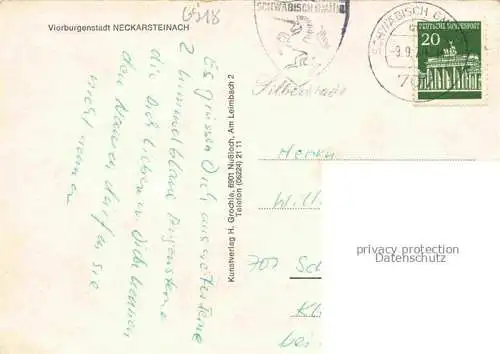 Vierburgenstadt NECKARSTEINACH
6918
SCHWÄBISCH GMÜND
SCHWÄBISCH GMÜND
-9.9.
707
20 DEUTSCHE BUNDESPOST
Es grüssen Dich aus weiter Ferne
2 himmelblaue Augensterne
die Dich lieben Dich kennen
den Namen dürfen sie
nicht nennen
Kunstverlag H. Grochla, 6901 Nußloch, Am Leimbach 2
Telefon (06224) 21 11
Herrn
Will
707 Sch
Kl
bei
privacy protection
Datenschutz